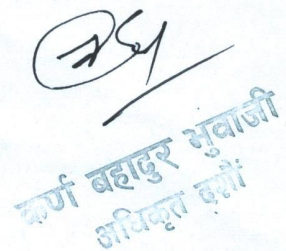 कर्ण बहादुर भुवाजी
अधिकृत दशौं